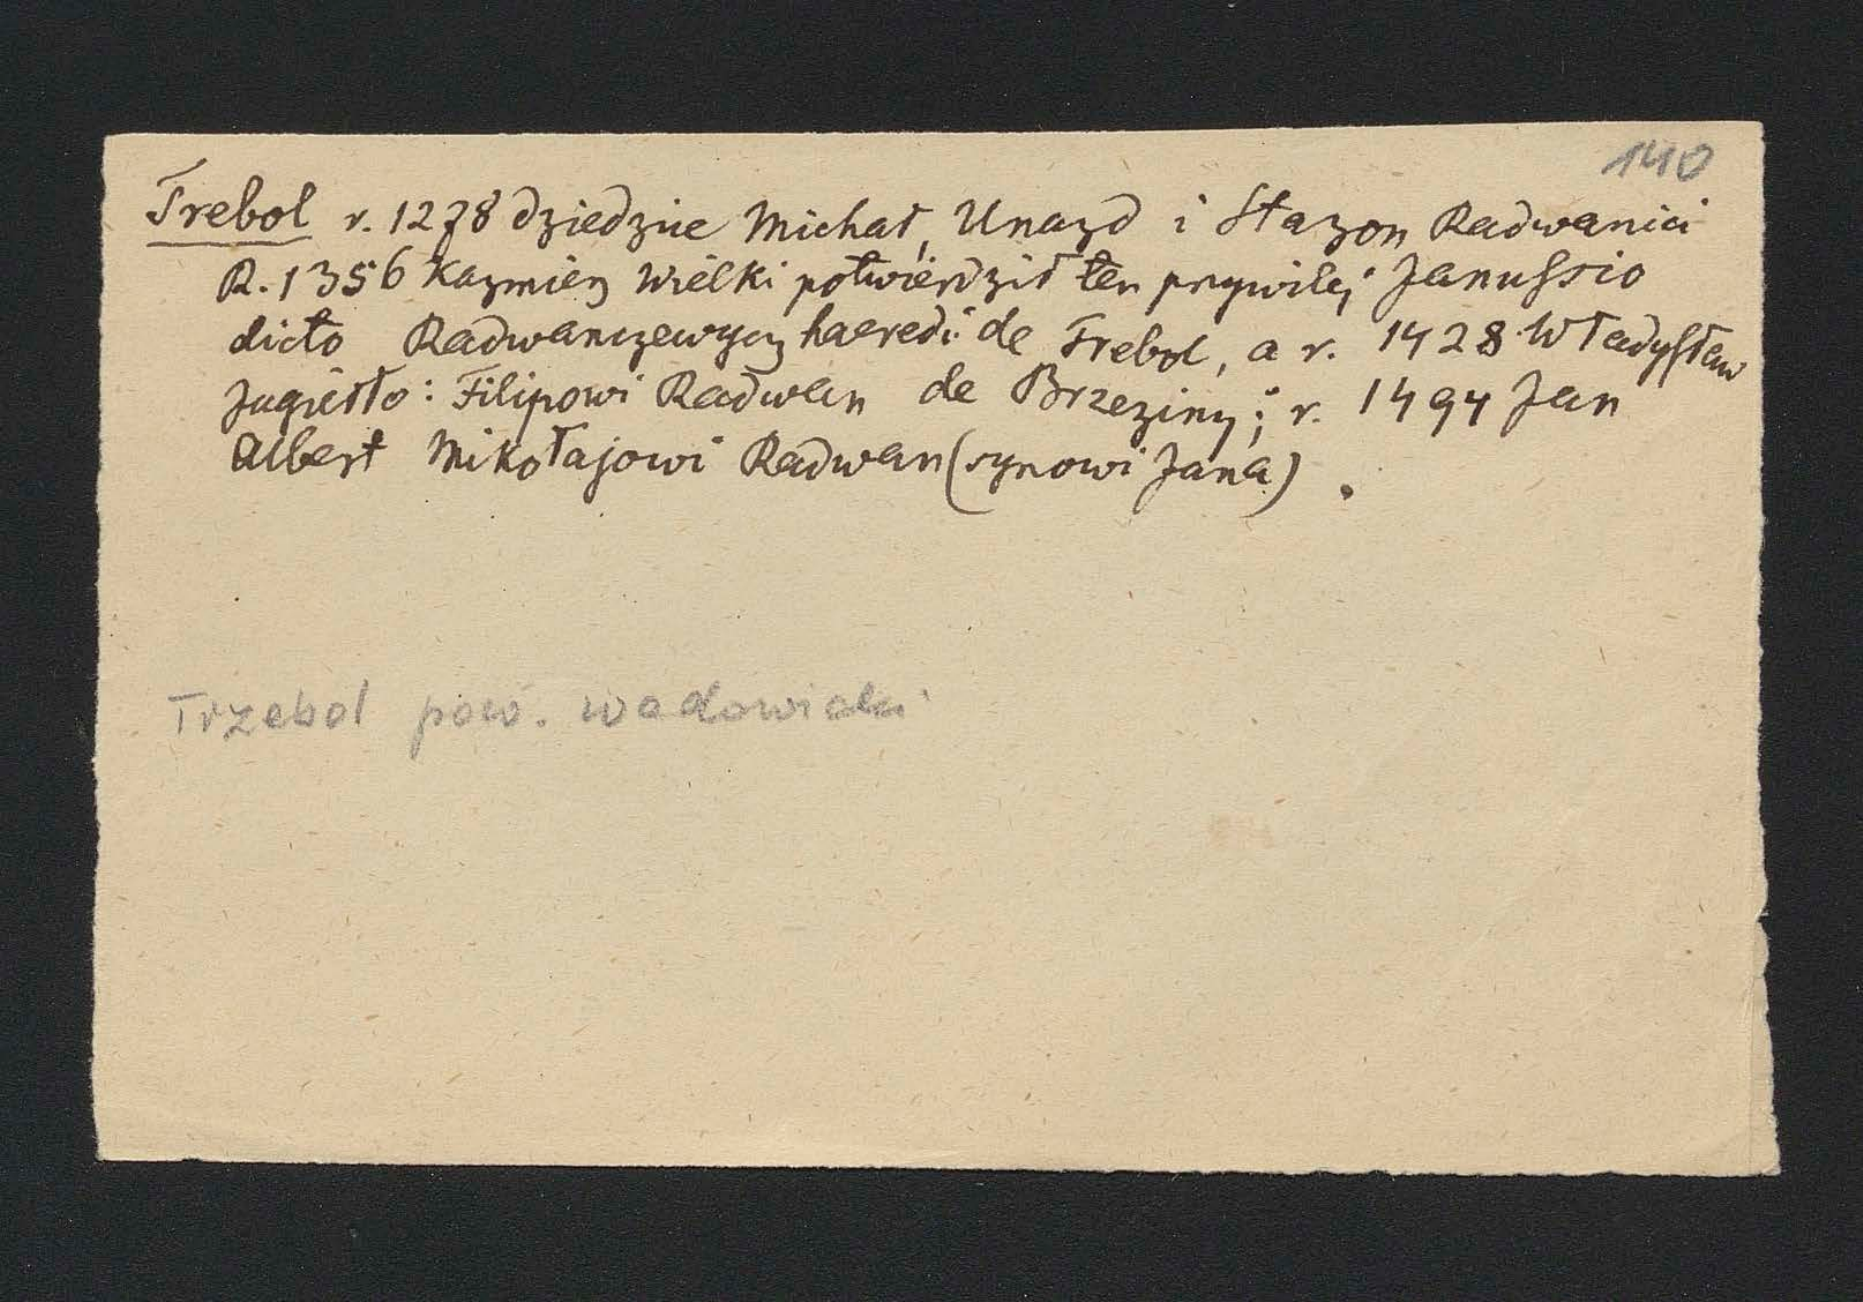 140
Trebol r. 1278 dziedzice Michał, Unazd i Stazon Radwanici
R. 1356 Kazmierz Wielki potwierdził ten przywilej Janussio
dicto Radwanczewycz haeredi de Trebol, a r. 1428 Władysław
Jagiełło: Filipowi Radwan de Brzeziny; r. 1494 Jan
Albert Mikołajowi Radwan (synowi Jana).
Trzebol pow. wadowicki